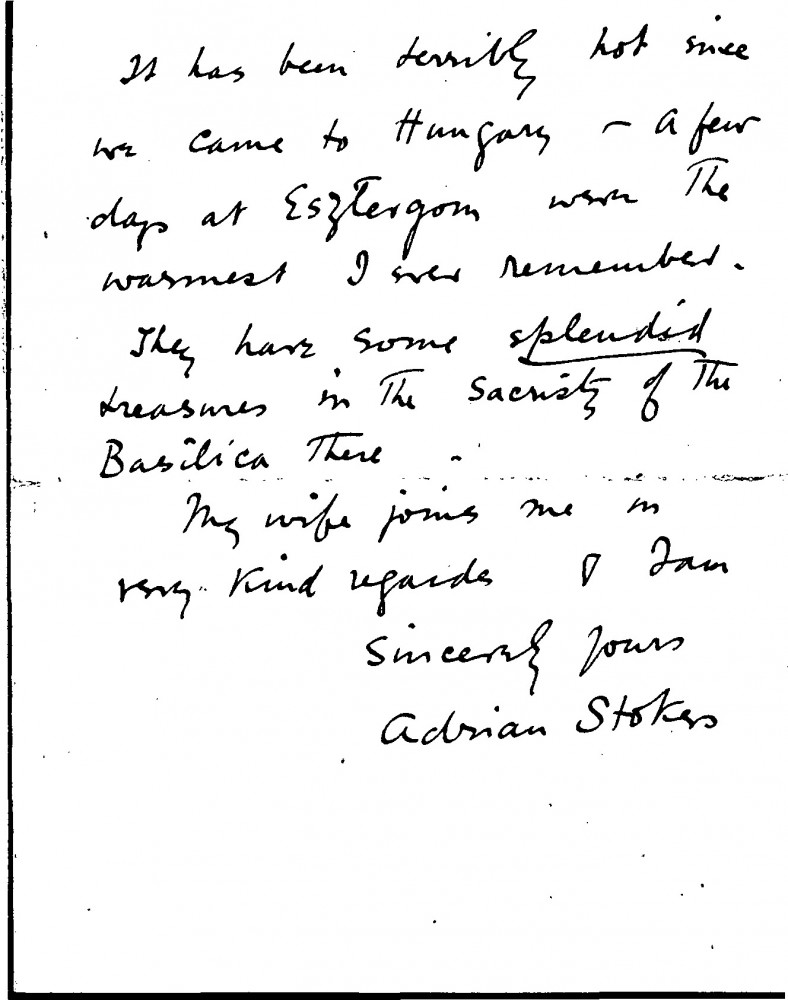 It has been terribly hot since
we came to Hungary – a few
days at Esztergom were the
warmest I ever remember.
They have some splendid
treasures in the Sacristy of the
Basilica there.
My wife joins me in
very kind regards & I am
Sincerely yours
Adrian Stokes